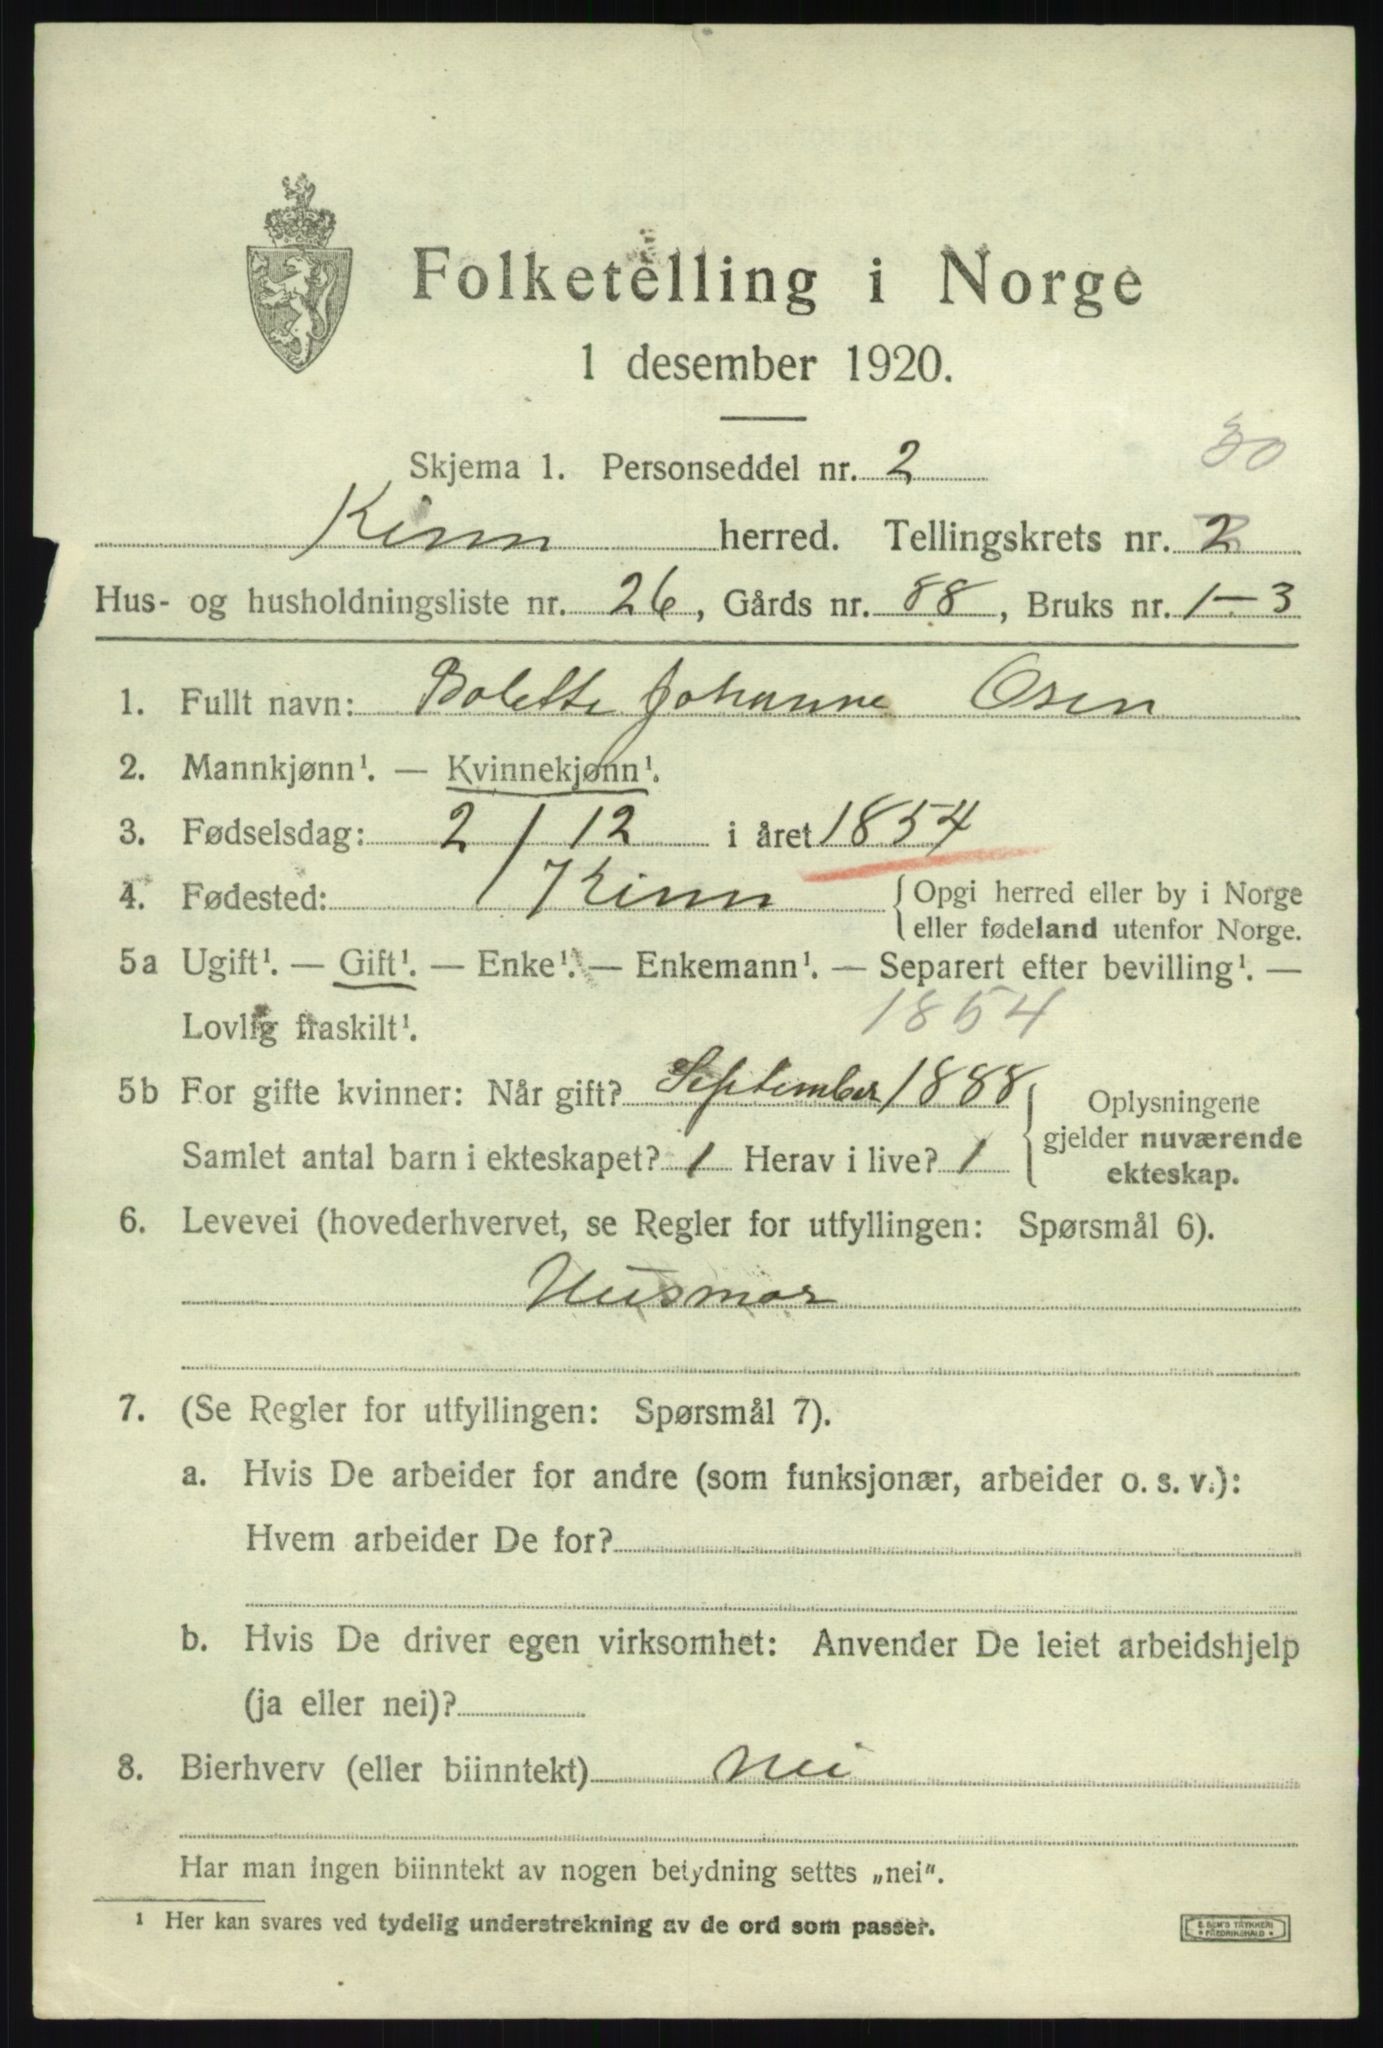 Folketelling i Norge
1 desember 1920.
30
Skjema 1. Personseddel nr. 2
Kinn herred. Tellingskrets nr. 2
Hus- og husholdningsliste nr. 26, Gårds nr. 88, Bruks nr. 1-3
1. Fullt navn: Bolette Johanne Osen
2. Mannkjønn¹. — Kvinnekjønn¹.
3. Fødselsdag: 2 / 12 i året 1854
4. Fødested: Kinn { Opgi herred eller by i Norge
eller fødeland utenfor Norge.
5a Ugift¹. — Gift¹. — Enke¹. — Enkemann¹. — Separert efter bevilling¹. —
Lovlig fraskilt¹. 1854
5b For gifte kvinner: Når gift? September 1888
Samlet antal barn i ekteskapet? 1 Herav i live? 1
Oplysningene
gjelder nuværende
ekteskap.
6. Levevei (hovederhvervet, se Regler for utfyllingen: Spørsmål 6).
Husmor
7. (Se Regler for utfyllingen: Spørsmål 7).
a. Hvis De arbeider for andre (som funksjonær, arbeider o. s. v.):
Hvem arbeider De for?
b. Hvis De driver egen virksomhet: Anvender De leiet arbeidshjelp
(ja eller nei)?
8. Bierhverv (eller biinntekt) Nei
Har man ingen biinntekt av nogen betydning settes „nei".
¹ Her kan svares ved tydelig understrekning av de ord som passer.
E. SEM'S TRYKKERI
FREDRIKSHALD